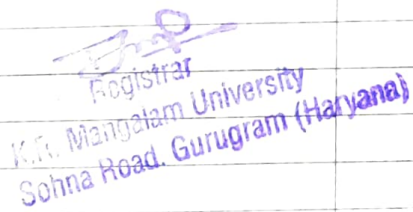 Registrar
K.R. Mangalam University
Sohna Road, Gurugram (Haryana)